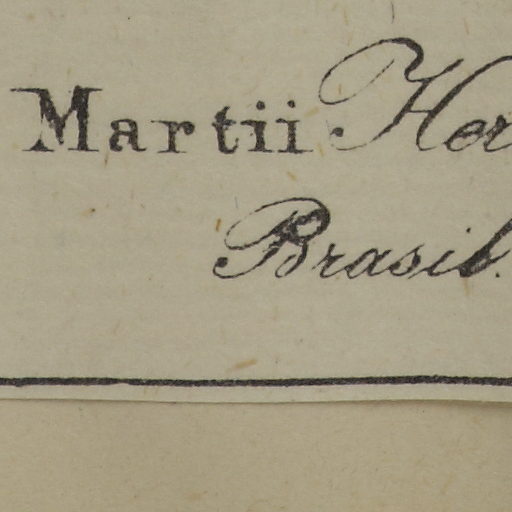 Martii Her
Brasil.